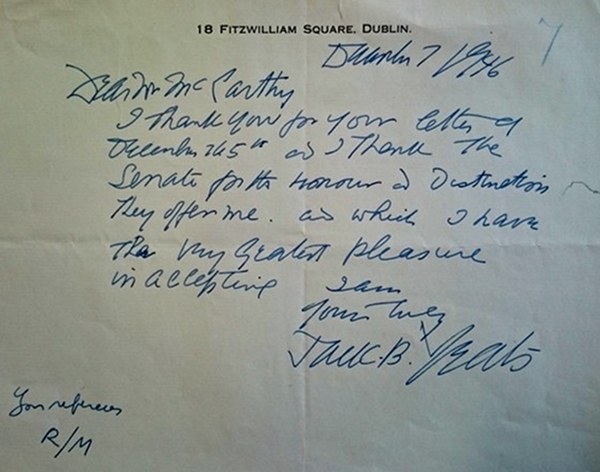 18 FITZWILLIAM SQUARE, DUBLIN.
7
December 7 1946
Dear Mr McCarthy
I thank you for your letter of
December the 5th and I thank the
Senate for the honour and Distinction
they offer me. and which I have
the very greatest pleasure
in accepting
I am
yours truly
Jack. B. Yeats
Your reference
R/M